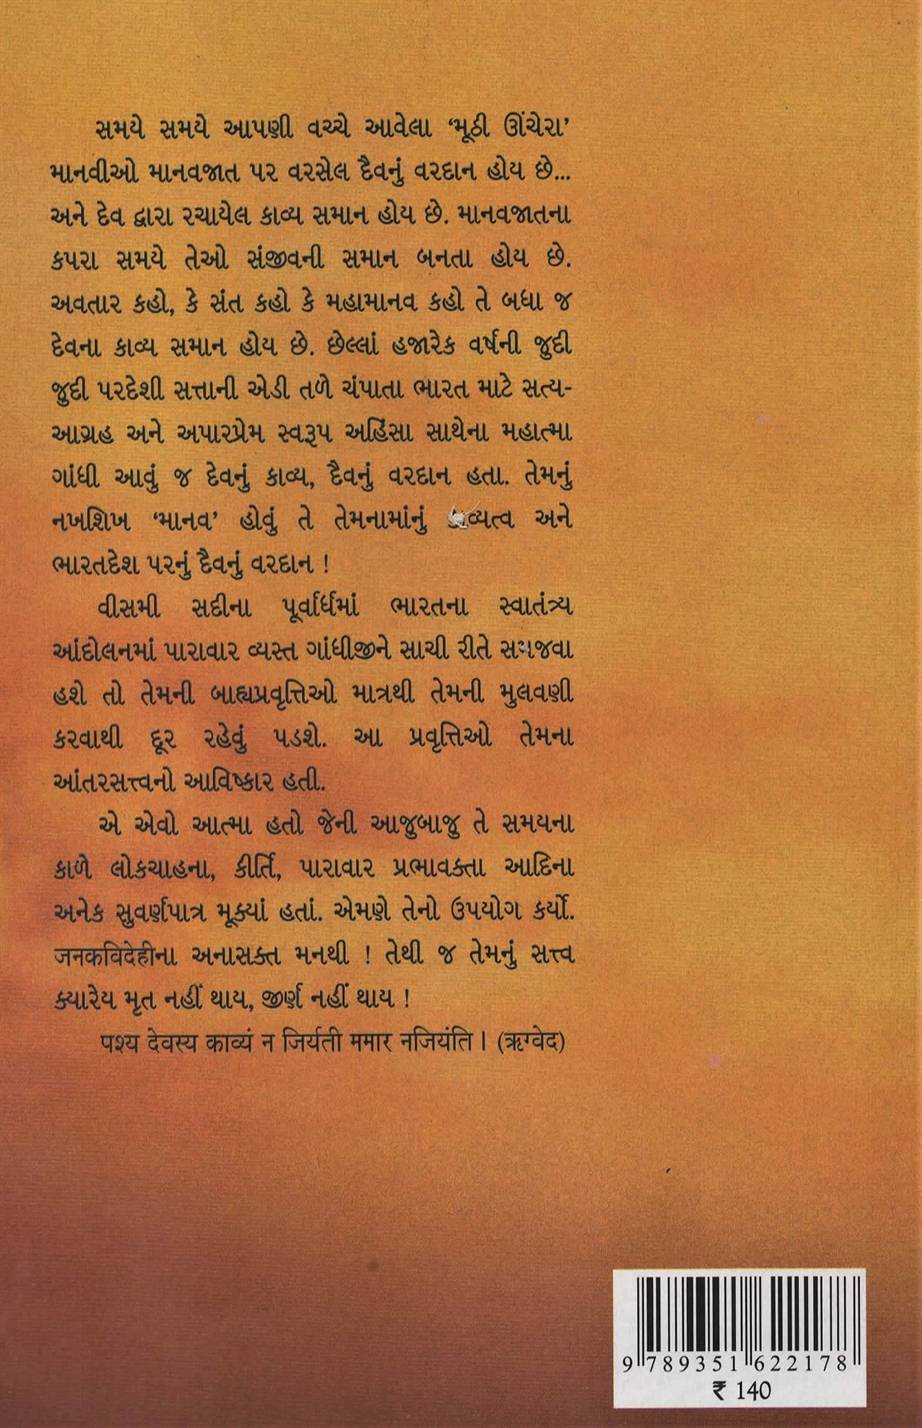 સમયે સમયે આપણી વચ્ચે આવેલા ‘મૂઠી ઊંચેરા’
માનવીઓ માનવજાત પર વરસેલ દૈવનું વરદાન હોય છે...
અને દેવ દ્વારા રચાયેલ કાવ્ય સમાન હોય છે. માનવજાતના
કપરા સમયે તેઓ સંજીવની સમાન બનતા હોય છે.
અવતાર કહો, કે સંત કહો કે મહામાનવ કહો તે બધા જ
દેવના કાવ્ય સમાન હોય છે. છેલ્લાં હજારેક વર્ષની જુદી
જુદી પરદેશી સત્તાની એડી તળે ચંપાતા ભારત માટે સત્ય-
આગ્રહ અને અપારપ્રેમ સ્વરૂપ અહિંસા સાથેના મહાત્મા
ગાંધી આવું જ દેવનું કાવ્ય, દૈવનું વરદાન હતા. તેમનું
નખશિખ ‘માનવ’ હોવું તે તેમનામાંનું અને
ભારતદેશ પરનું દૈવનું વરદાન !
વીસમી સદીના પૂર્વાર્ધમાં ભારતના સ્વાતંત્ર્ય
આંદોલનમાં પારાવાર વ્યસ્ત ગાંધીજીને સાચી રીતે સમજવા
હશે તો તેમની બાહ્યપ્રવૃત્તિઓ માત્રથી તેમની મુલવણી
કરવાથી દૂર રહેવું પડશે. આ પ્રવૃત્તિઓ તેમના
આંતરસત્ત્વનો આવિષ્કાર હતી.
એ એવો આત્મા હતો જેની આજુબાજુ તે સમયના
કાળે લોકચાહના, કીર્તિ, પારાવાર પ્રભાવકતા આદિના
અનેક સુવર્ણપાત્ર મૂક્યાં હતાં. એમણે તેનો ઉપયોગ કર્યો.
જનકવિદેહીના અનાસક્ત મનથી ! તેથી જ તેમનું સત્ત્વ
ક્યારેય મૃત નહીં થાય, જીર્ણ નહીં થાય !
पश्य देवस्य काव्यं न जिर्यती ममार नजियंति । (ऋग्वेद)
9 789351 622178
₹ 140